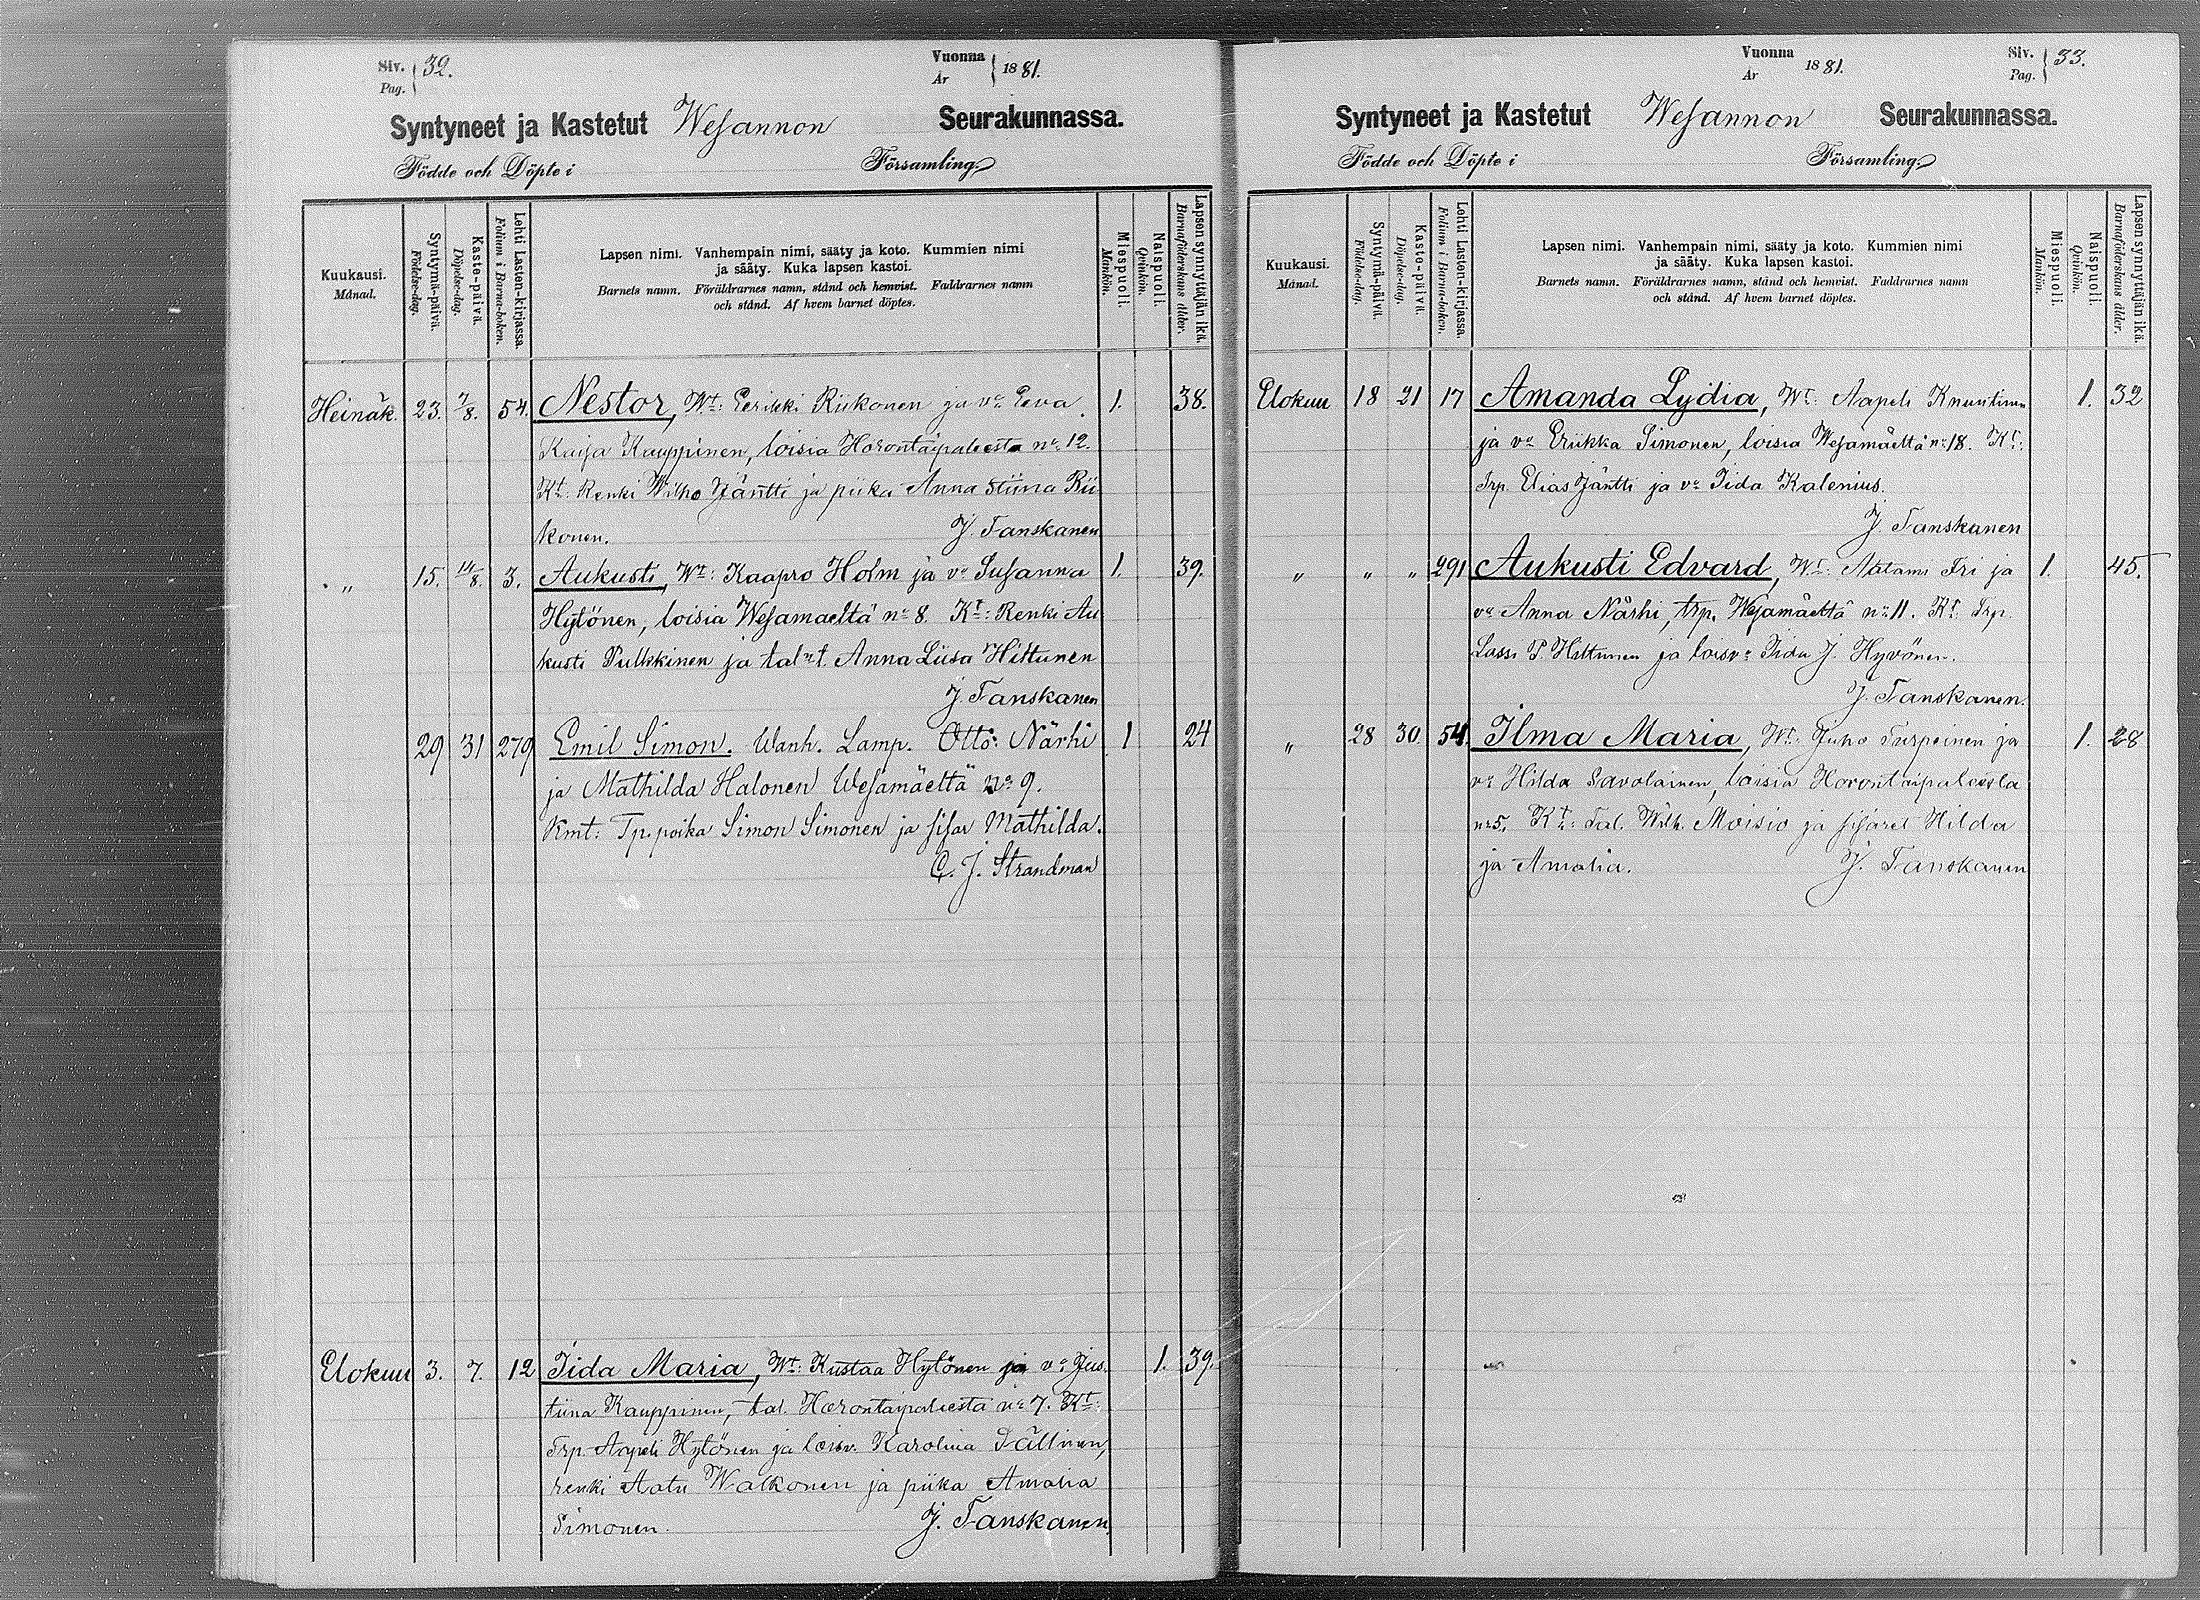 Siv. 32.
Pag.
Vuonna 1881.
År
Syntyneet ja Kastetut Wesannon Seurakunnassa.
Födde och Döpte i Församling.
Kuukausi.
Månad.
Syntymä-päivä.
Födelse-dag.
Kaste-päivä.
Döpelse-dag.
Lehti Lasten-kirjassa.
Folium i Barna-boken.
Lapsen nimi. Vanhempain nimi, sääty ja koto. Kummien nimi
ja sääty. Kuka lapsen kastoi.
Barnets namn. Föräldrarnes namn, stånd och hemvist. Faddrarnes namn
och stånd. Af hvem barnet döptes.
Miespuoli.
Mankön.
Naispuoli.
Qvinkön.
Lapsen synnyttäjän ikä.
Barnaföderskans ålder.
Heinäk. 23. 7/8. 54. Nestor, Wt: Eerikki Riikonen ja vo Eeva 1. 38.
Kaisa Kauppinen, loisia Horontaipaleesta no 12.
Kt: Renki Wilho Jäntti ja piika Anna Stiina Rii
konen. J. Tanskanen
" 15. 14/8. 3. Aukusti, Wt: Kaapro Holm ja vo Susanna 1. 39.
Hytönen, loisia Wesamäeltä no 8. Kt: Renki Au
kusti Pulkkinen ja tal. t. Anna Liisa Hiltunen
J. Tanskanen
29 31 279 Emil Simon. Wanh. Lamp. Otto Närhi 1 24
ja Mathilda Halonen Wesamäeltä no 9.
Kmt: Tp. poika Simon Simonen ja sisar Mathilda.
C. J. Strandman
Elokuu 3. 7. 12 Iida Maria, Wt: Kustaa Hytönen ja vo Jus 1. 39.
tiina Kauppinen, tal. Horontaipaleesta no 7. Kt:
Trp. Aapeli Hytönen ja loisv. Karolina
renki Aatu Walkonen ja piika Amalia
Simonen. J. Tanskanen
Vuonna 1881.
År
Siv. 33.
Pag.
Syntyneet ja Kastetut Wesannon Seurakunnassa.
Födde och Döpte i Församling.
Kuukausi.
Månad.
Syntymä-päivä.
Födelse-dag.
Kaste-päivä.
Döpelse-dag.
Lehti Lasten-kirjassa.
Folium i Barna-boken.
Lapsen nimi. Vanhempain nimi, sääty ja koto. Kummien nimi
ja sääty. Kuka lapsen kastoi.
Barnets namn. Föräldrarnes namn, stånd och hemvist. Faddrarnes namn
och stånd. Af hvem barnet döptes.
Miespuoli.
Mankön.
Naispuoli.
Qvinkön.
Lapsen synnyttäjän ikä.
Barnaföderskans ålder.
Elokuu 18 21 17 Amanda Lydia, Wt: Aapeli Knuutinen 1. 32
ja vo Eriikka Simonen, loisia Wesamäeltä no 18. Kt:
Trp. Elias Jäntti ja vo Iida Kalenius.
J. Tanskanen
" " " 291 Aukusti Edvard, Wt: Aatami Iri ja 1. 45.
vo Anna Närhi, trp. Wesamäeltä no 11. Kt: Trp.
Lassi P. Hiltunen ja loisvo Iida J. Hyvönen.
J. Tanskanen.
" 28 30. 54. Ilma Maria, Wt: Juho Turpeinen ja 1. 28
vo Hilda Savolainen, loisia Horontaipaleesta
no 5. Kt: Tal. Wilh. Moisio ja sisäret Hilda
ja Amalia. J. Tanskanen